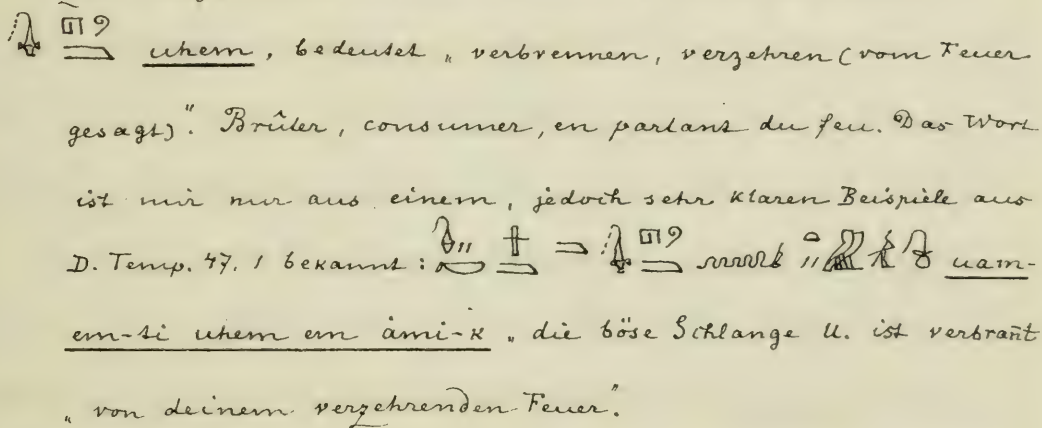 uhem, bedeutet „verbrennen, verzehren (vom Feuer
gesagt)". Brûler, consumer, en parlant du feu. Das Wort
ist mir nur aus einem, jedoch sehr klaren Beispiele aus
D. Temp. 47. 1 bekannt: uam-
em-ti uhem em ámi-k „die böse Schlange U. ist verbrañt
„von deinem verzehrenden Feuer."